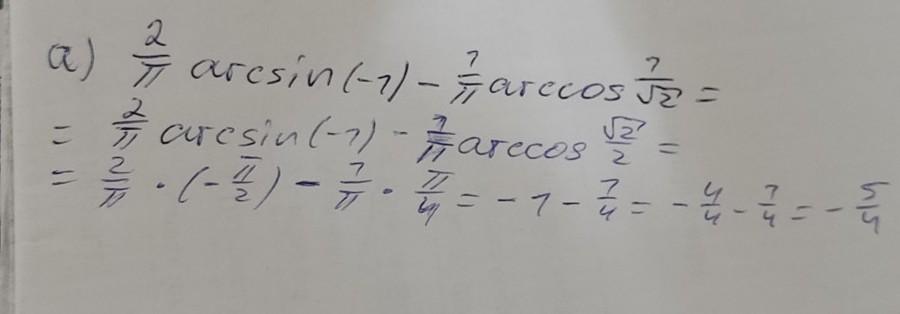 a) 2/π arcsin(-1) - 1/π arccos 1/√2 =
= 2/π arcsin(-1) - 1/π arccos √2/2 =
= 2/π · (-π/2) - 1/π · π/4 = -1 - 1/4 = -4/4 - 1/4 = -5/4